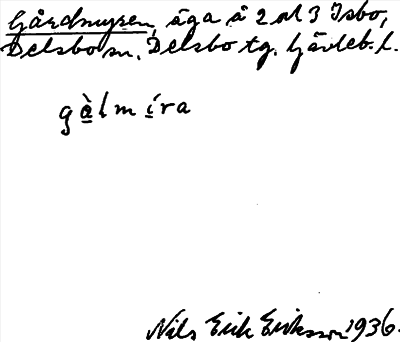 Gårdmyren, äga å 2 al 3 Isbo,
Delsbo sn. Delsbo tg. Gävleb. l.
gàlmíra
Nils Erik Eriksson 1936.